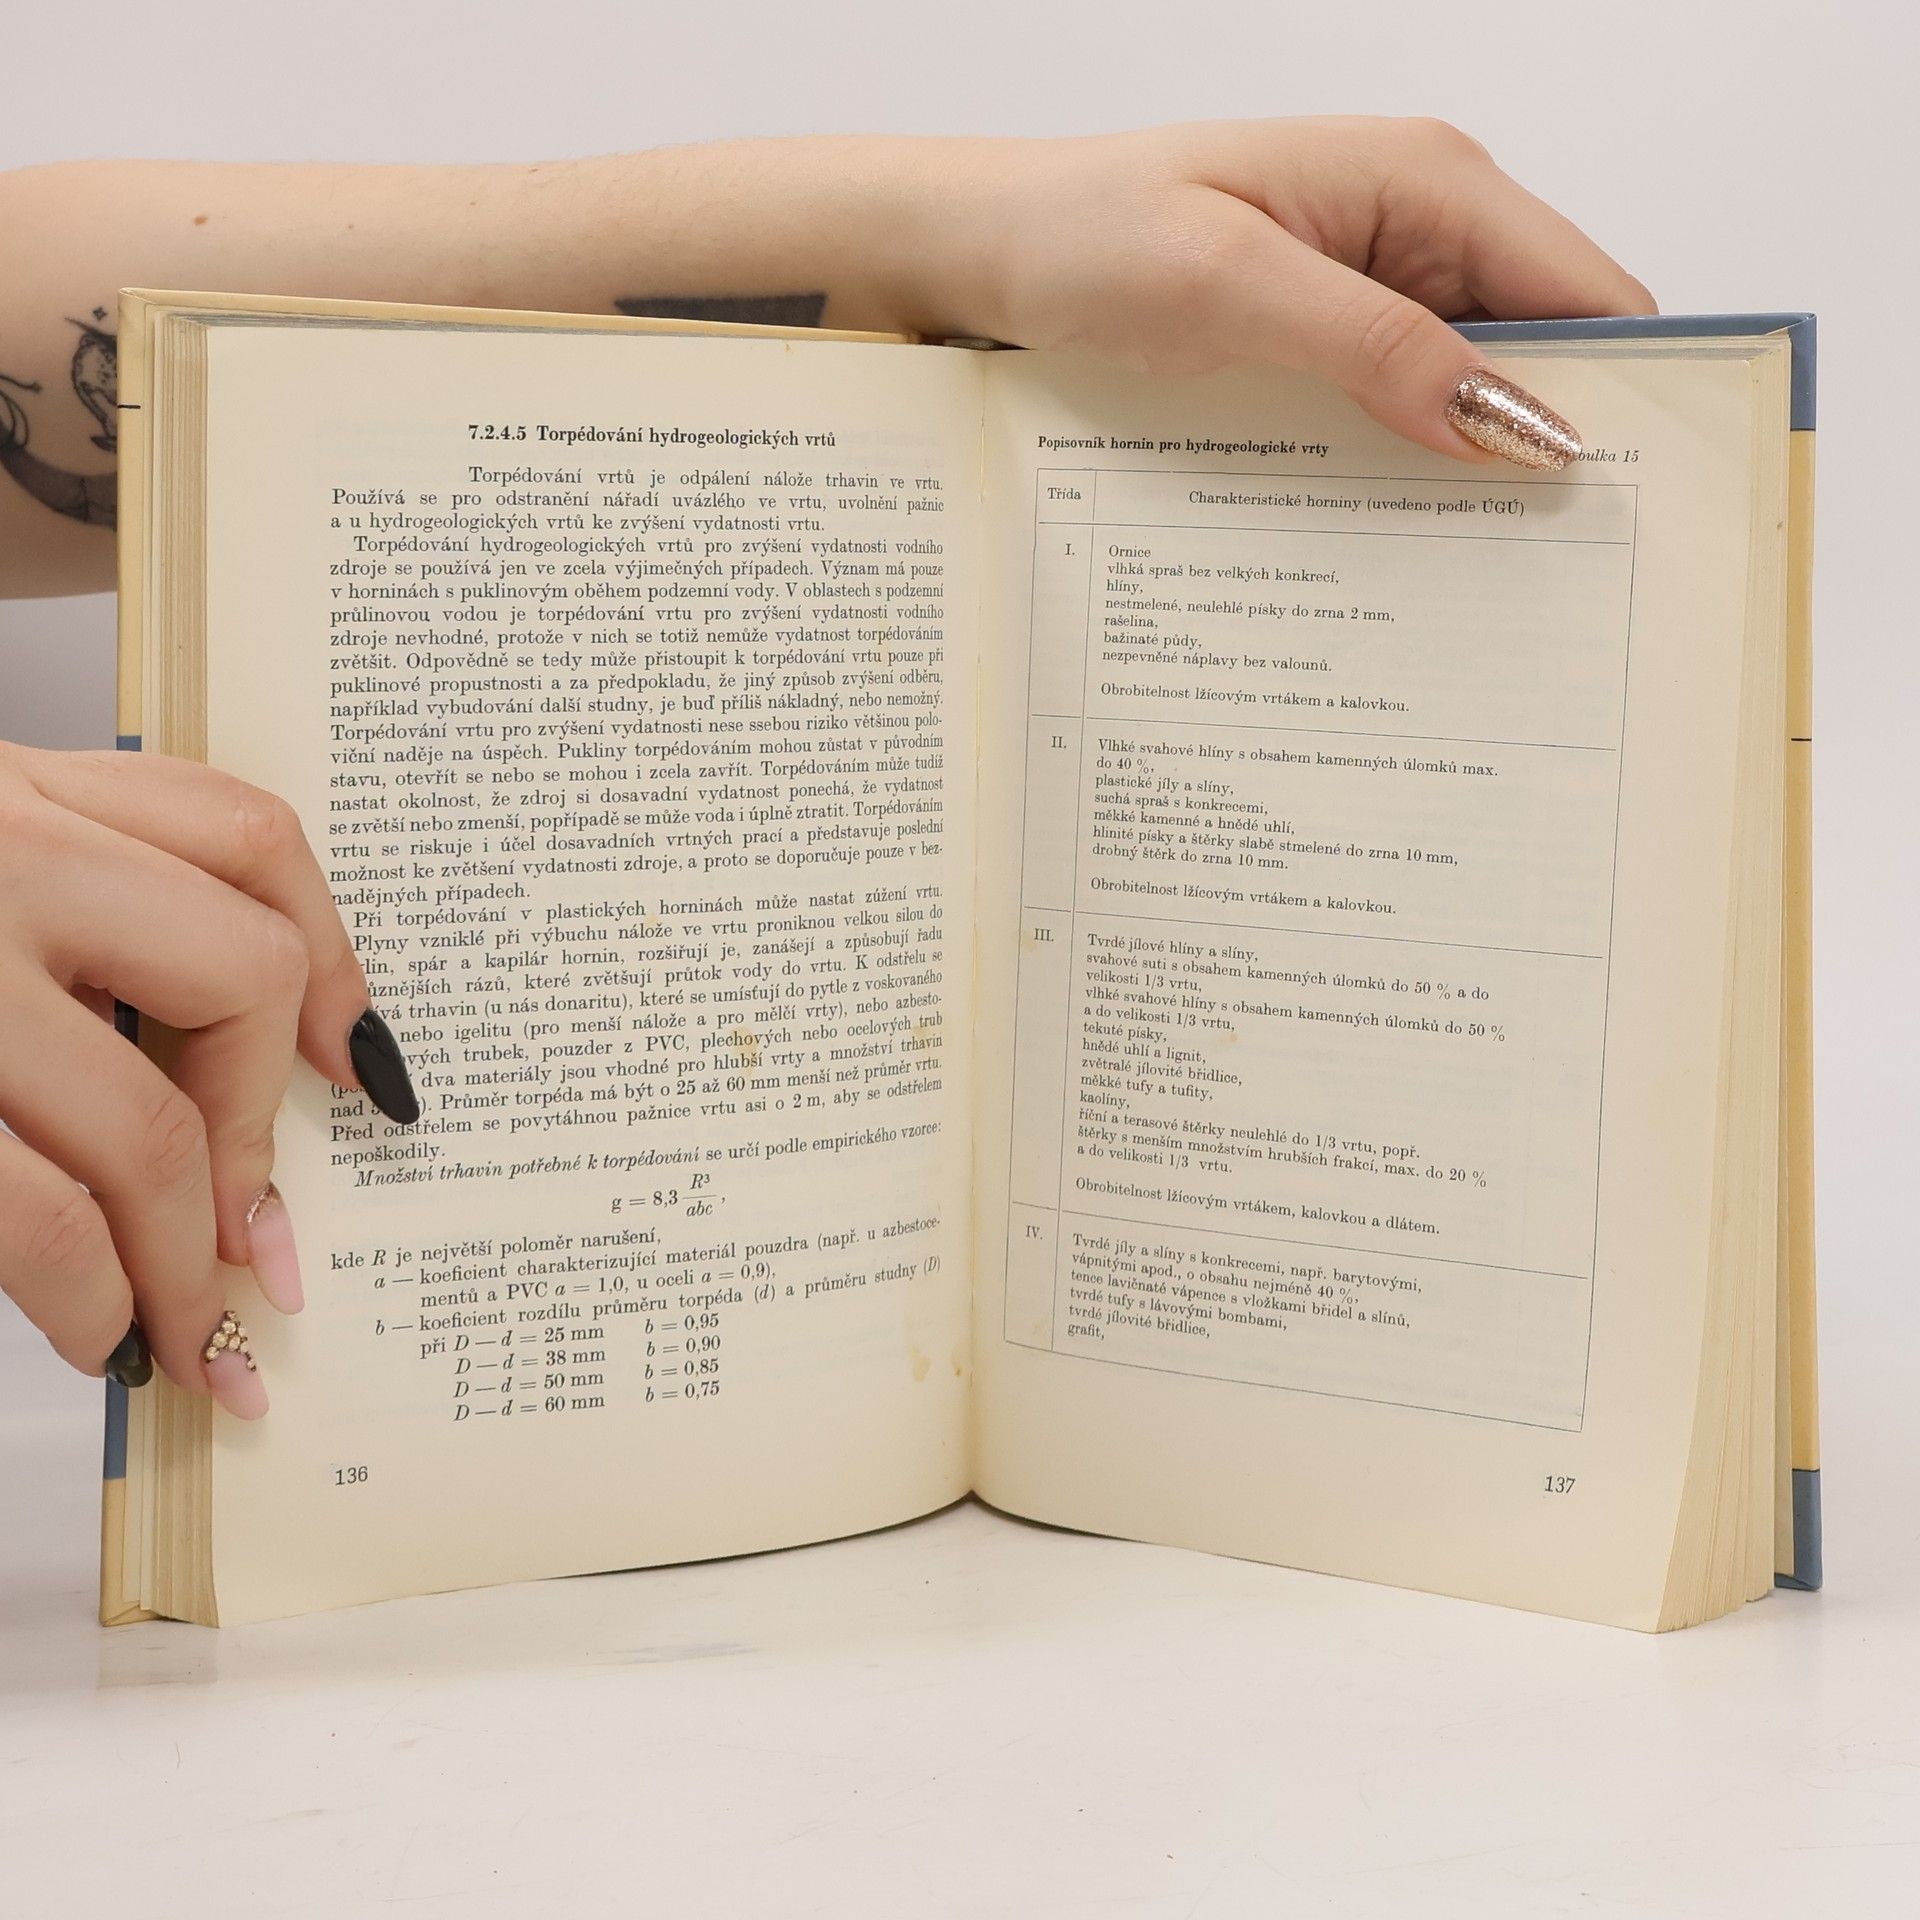 7.2.4.5 Torpédování hydrogeologických vrtů
Torpédování vrtů je odpálení nálože trhavin ve vrtu.
Používá se pro odstranění nářadí uvázlého ve vrtu, uvolnění pažnic
a u hydrogeologických vrtů ke zvýšení vydatnosti vrtu.
Torpédování hydrogeologických vrtů pro zvýšení vydatnosti vodního
zdroje se používá jen ve zcela výjimečných případech. Význam má pouze
v horninách s puklinovým oběhem podzemní vody. V oblastech s podzemní
průlinovou vodou je torpédování vrtu pro zvýšení vydatnosti vodního
zdroje nevhodné, protože v nich se totiž nemůže vydatnost torpédováním
zvětšit. Odpovědně se tedy může přistoupit k torpédování vrtu pouze při
puklinové propustnosti a za předpokladu, že jiný způsob zvýšení odběru,
například vybudování další studny, je buď příliš nákladný, nebo nemožný.
Torpédování vrtu pro zvýšení vydatnosti nese ssebou riziko většinou polo-
viční naděje na úspěch. Pukliny torpédováním mohou zůstat v původním
stavu, otevřít se nebo se mohou i zcela zavřít. Torpédováním může tudíž
nastat okolnost, že zdroj si dosavadní vydatnost ponechá, že vydatnost
se zvětší nebo zmenší, popřípadě se může voda i úplně ztratit. Torpédováním
vrtu se riskuje i účel dosavadních vrtných prací a představuje poslední
možnost ke zvětšení vydatnosti zdroje, a proto se doporučuje pouze v bez-
nadějných případech.
Při torpédování v plastických horninách může nastat zúžení vrtu.
Plyny vzniklé při výbuchu nálože ve vrtu proniknou velkou silou do
lin, spár a kapilár hornin, rozšiřují je, zanášejí a způsobují řadu
různějších rázů, které zvětšují průtok vody do vrtu. K odstřelu se
ívá trhavin (u nás donaritu), které se umísťují do pytle z voskovaného
nebo igelitu (pro menší nálože a pro mělčí vrty), nebo azbesto-
vých trubek, pouzder z PVC, plechových nebo ocelových trub
dva materiály jsou vhodné pro hlubší vrty a množství trhavin
nad ). Průměr torpéda má být o 25 až 60 mm menší než průměr vrtu.
Před odstřelem se povytáhnou pažnice vrtu asi o 2 m, aby se odstřelem
nepoškodily.
Množství trhavin potřebné k torpédování se určí podle empirického vzorce:
g = 8,3 R³/abc ,
kde R je největší poloměr narušení,
a — koeficient charakterizující materiál pouzdra (např. u azbestoce-
mentů a PVC a = 1,0, u oceli a = 0,9),
b — koeficient rozdílu průměru torpéda (d) a průměru studny (D)
při D — d = 25 mm b = 0,95
D — d = 38 mm b = 0,90
D — d = 50 mm b = 0,85
D — d = 60 mm b = 0,75
136
Popisovník hornin pro hydrogeologické vrty bulka 15
Třída Charakteristické horniny (uvedeno podle ÚGÚ)
I. Ornice
vlhká spraš bez velkých konkrecí,
hlíny,
nestmelené, neulehlé písky do zrna 2 mm,
rašelina,
bažinaté půdy,
nezpevněné náplavy bez valounů.
Obrobitelnost lžícovým vrtákem a kalovkou.
II. Vlhké svahové hlíny s obsahem kamenných úlomků max.
do 40 %,
plastické jíly a slíny,
suchá spraš s konkrecemi,
měkké kamenné a hnědé uhlí,
hlinité písky a štěrky slabě stmelené do zrna 10 mm,
drobný štěrk do zrna 10 mm.
Obrobitelnost lžícovým vrtákem a kalovkou.
III. Tvrdé jílové hlíny a slíny,
svahové suti s obsahem kamenných úlomků do 50 % a do
velikosti 1/3 vrtu,
vlhké svahové hlíny s obsahem kamenných úlomků do 50 %
a do velikosti 1/3 vrtu,
tekuté písky,
hnědé uhlí a lignit,
zvětralé jílovité břidlice,
měkké tufy a tufity,
kaolíny,
říční a terasové štěrky neulehlé do 1/3 vrtu, popř.
štěrky s menším množstvím hrubších frakcí, max. do 20 %
a do velikosti 1/3 vrtu.
Obrobitelnost lžícovým vrtákem, kalovkou a dlátem.
IV. Tvrdé jíly a slíny s konkrecemi, např. barytovými,
vápnitými apod., o obsahu nejméně 40 %,
tence lavičnaté vápence s vložkami břidel a slínů,
tvrdé tufy s lávovými bombami,
tvrdé jílovité břidlice,
grafit,
137